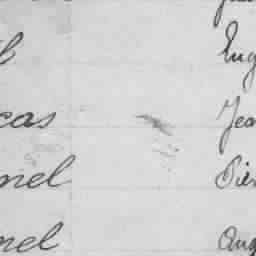 l Eug
cas Jea
nel Pier
nel Aug